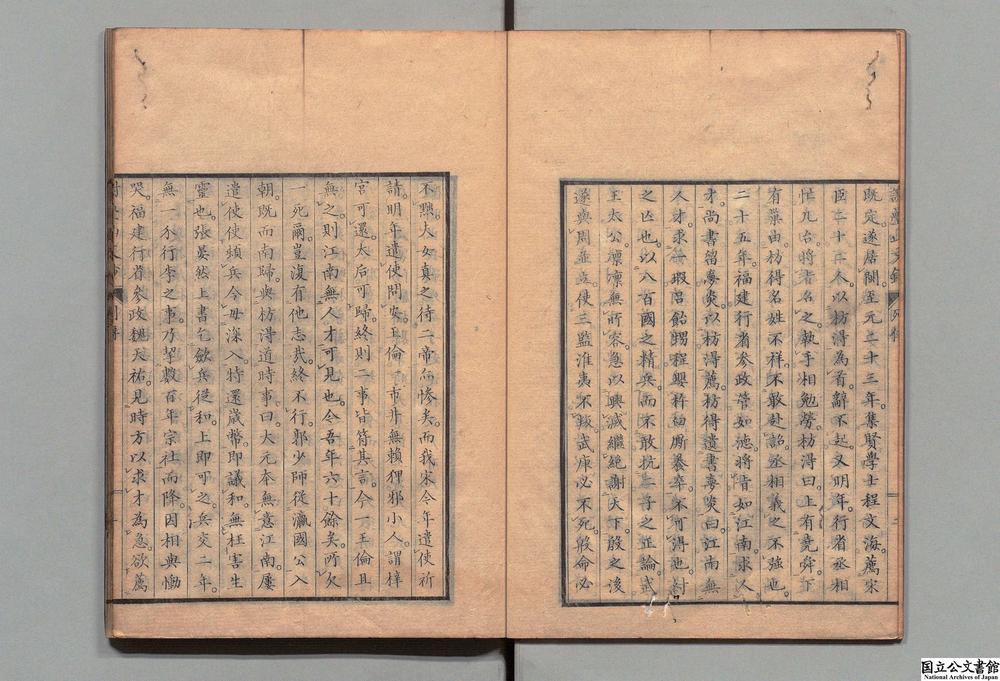 既定遂居閩至元二十三年集賢學士程文海薦宋
臣二十二人以枋得為首辭不起又明年行省丞相
忙兀台將旨召之執手相勉勞枋得曰上有堯舜下
有巢由枋得名姓不祥不敢赴詔丞相義之不強也
二十五年福建行省參政管如德將旨如江南求人
才尚書留夢炎以枋得薦枋得遺書夢炎曰江南無
人才求一瑕呂飴甥程嬰杵臼廝養卒不可得也紂
之亡也以八百國之精兵而不敢抗二子之正論武
王太公凛凛無所容急以興滅繼絕謝天下殷之後
遂與周並立使三監淮夷不叛武庚必不死殷命必
不黜夫女真之待二帝亦惨矣而我宋今年遣使祈
請明年遣使問安王倫一市井無賴狎邪小人謂梓
宮可還太后可歸終則二事皆符其言今一王倫且
無之則江南無人才可見也今吾年六十餘矣所欠
一死爾豈復有他志哉終不行郭少師從瀛國公入
朝既而南歸與枋得道時事曰大元本無意江南屢
遣使使頓兵令毋深入特還歲幣即議和無枉害生
靈也張晏然上書乞斂兵從和上即可之兵交二年
無一介行李之事乃挈數百年宗社而降因相與慟
哭福建行省參政魏天祐見時方以求才為急欲薦
国立公文書館
National Archives of Japan